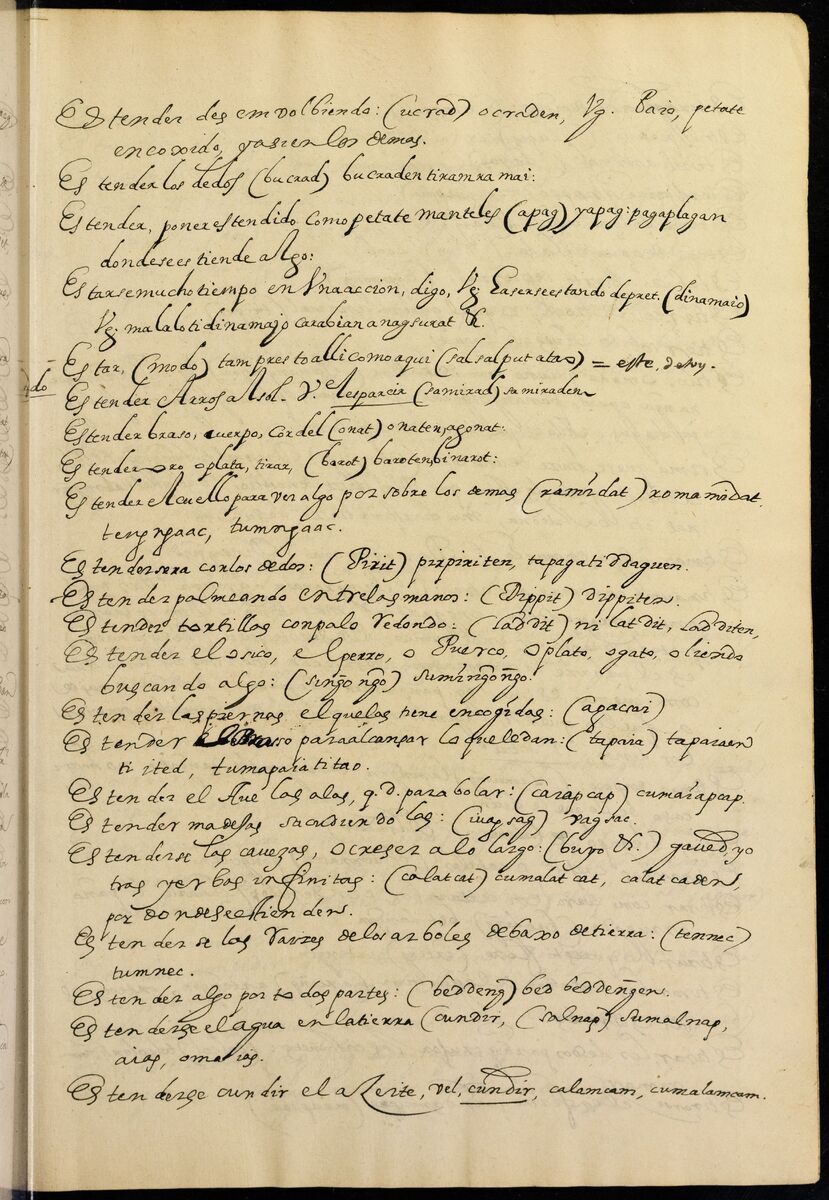 Estender desemvolbiendo: (ucrad) ocraden, Vg. Paio, petate
encoxido, yasienlos demas.
Estenderlos dedos (bucrad) bucraden tiramramai:
Estender, ponerestendido como petate manteles (apag) yapag: pagaplagan
dondesees tiende algo:
Estarsemucho tiempo en Vna accion, digo, Vg: Easerseestando depret. (dinamaio)
Vg: malaloti dinamajo carabian anagsurat &.
Estar, (modo) tam presto alli como aqui (salsalputatao) = este,
do
Estender Arros al sol. V.e esparcir (samirad) samiraden
Estender braso, cuerpo, cordel (onat) onaten, agonat:
Estender oro, oplata, tirar, (barot) baroten, binarot:
Estender el cuello para ver algo por sobre los demas (ramidat) romamidat.
tengngaac, tumngaac.
Estendersera conlos dedos: (Pirit) pirpiriten, tapagati
Estender palmeando entrelas manos: (Dippit) dippiten.
Estender tortillas conpalo redondo: (laddit) ni latdit, ladditen,
Estender elosico, el perro, o Puerco, oplato, ogato, oliendo
buscando algo: (singongo) sumingongo.
Estender las piernas el quelas tiene encogidas: (apacsar)
Estender el Braso para alcansar lo queledan: (tapaia) tapaiaen
ti ited, tumapaia titao.
Estender el Ave las alas, q.d. para bolar: (carapcap) cumarapcap.
Estender madesas sacudiendo las: (uagsag) vagsac.
Estenderse las cavezas, o creser alo largo: (buyo &.) gaved, yo
tras yerbas infinitas: (calatcat) cumalatcat, calatcaden,
por dondese tienden.
Estenderse las raizes delos arboles debaxo detierra: (tennec)
tumnec.
Estender algo por todos partes: (beddeng) bed beddengen.
Estenderse el agua en latierra (cundir, (salnap) sumalnap,
aias, omaias.
Estenderse cundir el aZeite, vel, cundir, calamcam, cumalamcam.